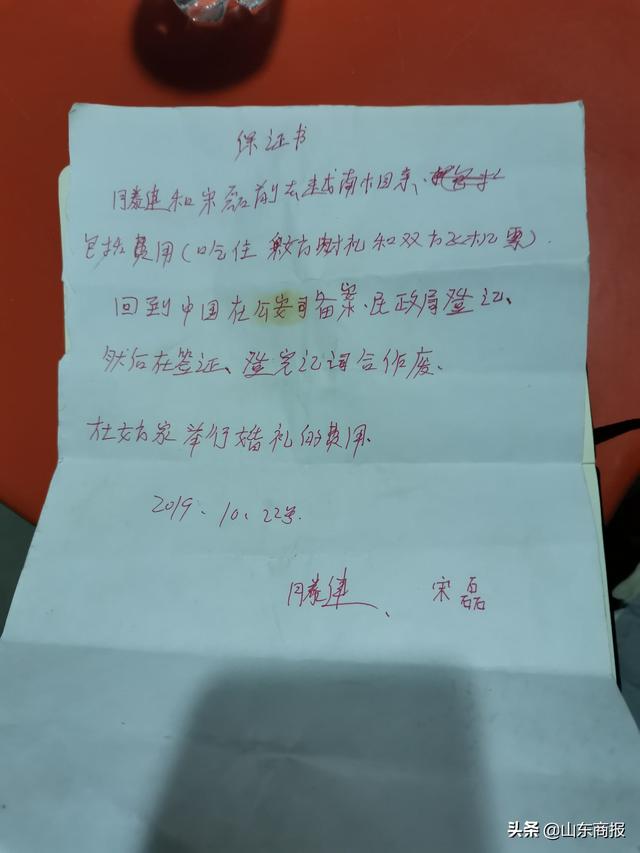 保证书
滕建和宋磊前去越南相亲、
包括费用(吃住 女方谢礼和双方飞机票).
回到中国在公安司备案、民政局登记、
然后在签证、登完记词合作废.
在女方家举行婚礼的费用.
2019.10.22号.
滕建、宋磊
头条 @山东商报